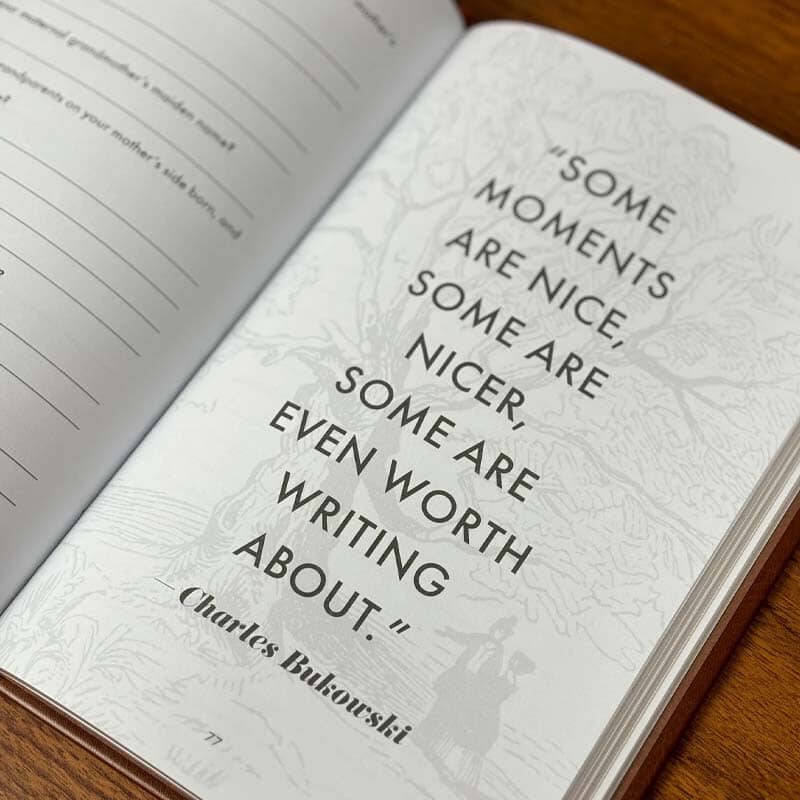 mother's
your maternal grandmother's maiden name?
grandparents on your mother's side born, and
?
?
"SOME
MOMENTS
ARE NICE,
SOME ARE
NICER,
SOME ARE
EVEN WORTH
WRITING
ABOUT."
— Charles Bukowski
77